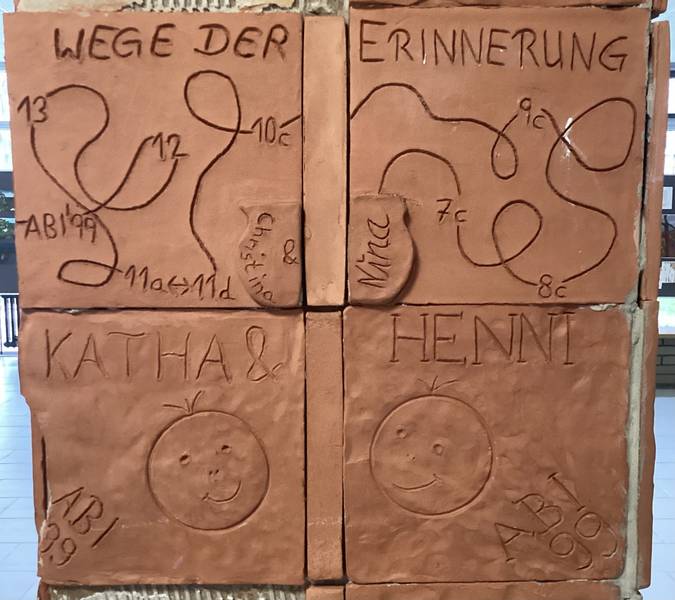 WEGE DER ERINNERUNG
13
12
10c
9c
ABI'99
11a↔11d
Christina &
Nina
7c
8c
KATHA & HENNI
ABI 99
ABI 99